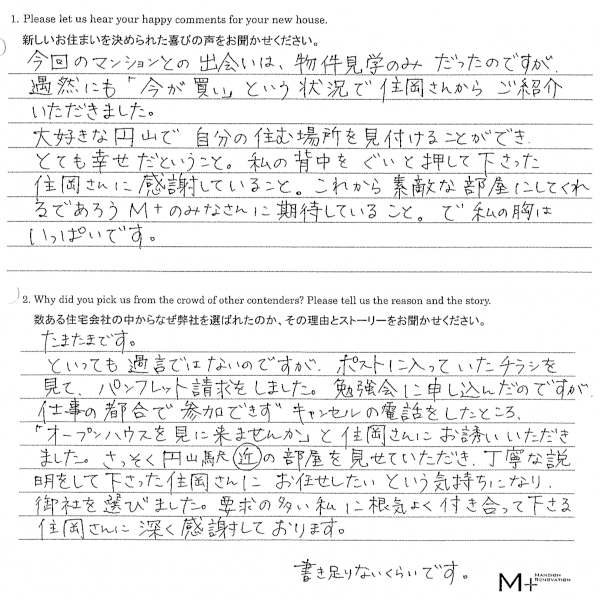 1. Please let us hear your happy comments for your new house.
新しいお住まいを決められた喜びの声をお聞かせください。
今回のマンションとの出会いは、物件見学のみだったのですが、
偶然にも「今が買い」という状況で住岡さんからご紹介
いただきました。
大好きな円山で自分の住む場所を見付けることができ、
とても幸せだということ。私の背中をぐいと押して下さった
住岡さんに感謝していること。これから素敵な部屋にしてくれ
るであろうM+のみなさんに期待していること。で私の胸は
いっぱいです。
2. Why did you pick us from the crowd of other contenders? Please tell us the reason and the story.
数ある住宅会社の中からなぜ弊社を選ばれたのか、その理由とストーリーをお聞かせください。
たまたまです。
といっても過言ではないのですが、ポストに入っていたチラシを
見て、パンフレット請求をしました。勉強会に申し込んだのですが、
仕事の都合で参加できずキャンセルの電話をしたところ、
「オープンハウスを見に来ませんか」と住岡さんにお誘いいただき
ました。さっそく円山駅近の部屋を見せていただき、丁寧な説
明をして下さった住岡さんにお任せしたいという気持ちになり、
御社を選びました。要求の多い私に根気よく付き合って下さる
住岡さんに深く感謝しております。
書き足りないくらいです。
M+ MANSION RENOVATION